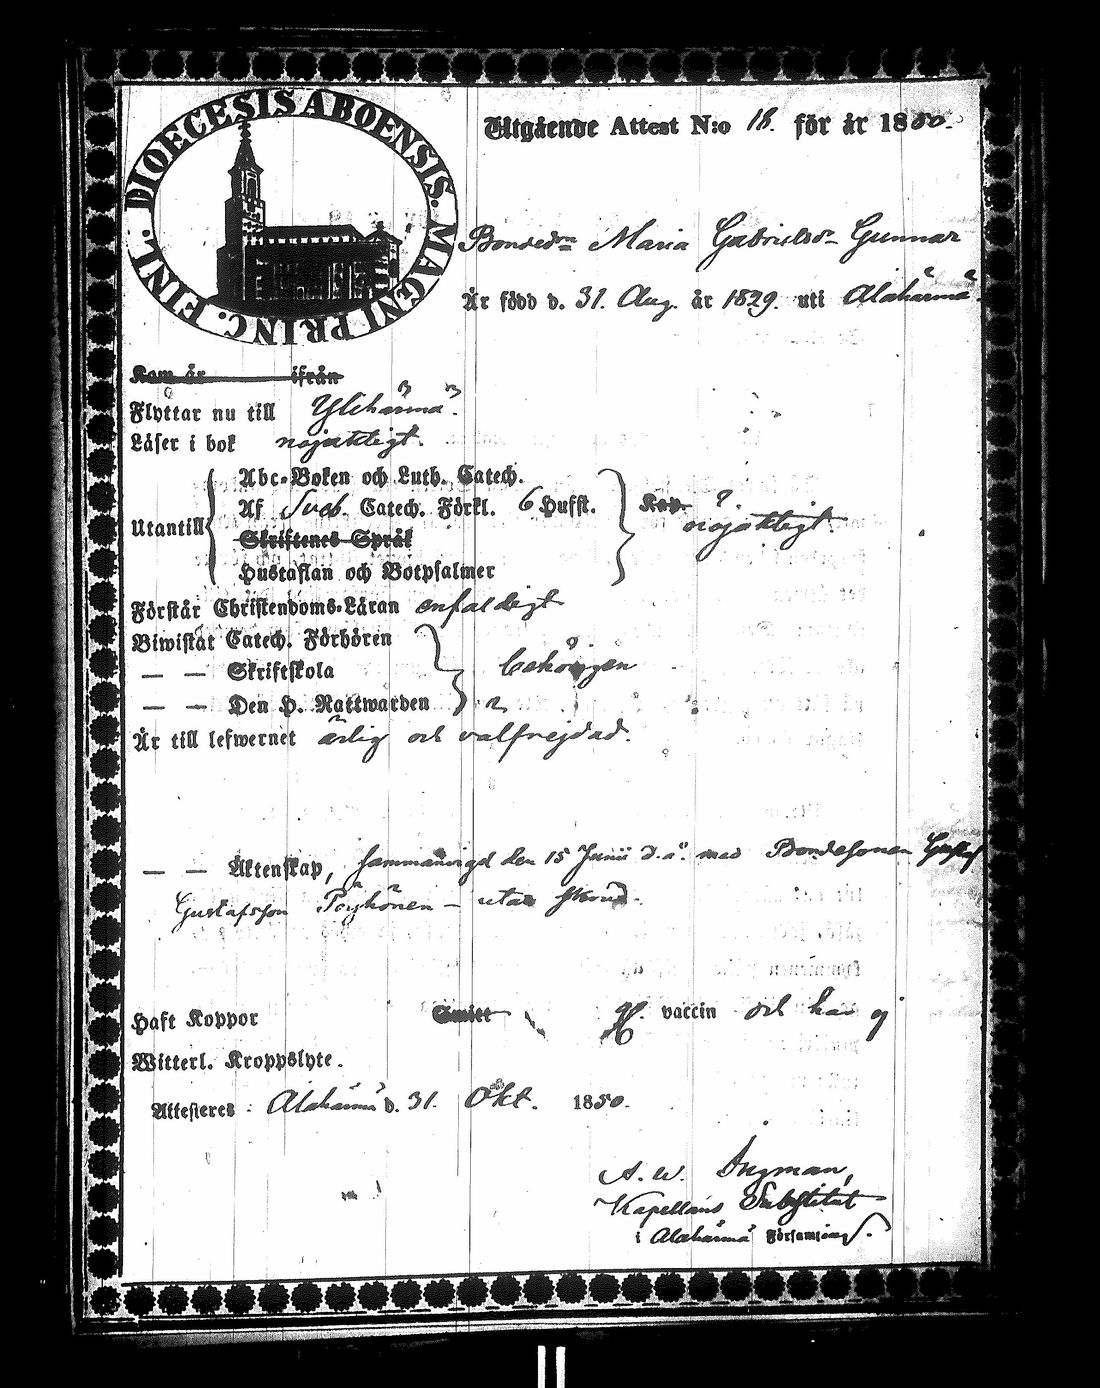 DIOECESIS ABOENSIS. MAGNI PRINC. FINL.
Utgående Attest N:o 18. för år 1850.
Bondedrn Maria Gabrielsdr Gunnar
Är född d. 31. Aug. år 1829. uti Alahärmä.
Kom år ifrån
Flyttar nu till Ylihärmä.
Läser i bok nöjaktigt.
Abc-Boken och Luth. Catech.
Utantill Af Sveb. Catech. Förkl. 6 Hufst. Kap. nöjaktigt.
Skriftenes Språk
Hustaflan och Botpsalmer
Förstår Christendoms-Läran enfaldigt
Biwistat Catech. Förhören
— — Skriftskola behörigen
— — Den H. Nattwarden
Är till lefwernet ärlig och välfrejdad.
— — Äktenskap, sammanvigd den 15 Junii d.å. med Bondesonen Gustaf
Gustafsson Pöyhönen – utan
Haft Koppor Smitt vaccin och har ej
Witterl. Kroppslyte.
Attesteres: Alahärmä d. 31. Okt. 1850.
A. W. Ingman,
Kapellans Substitut
i Alahärmä Församling.